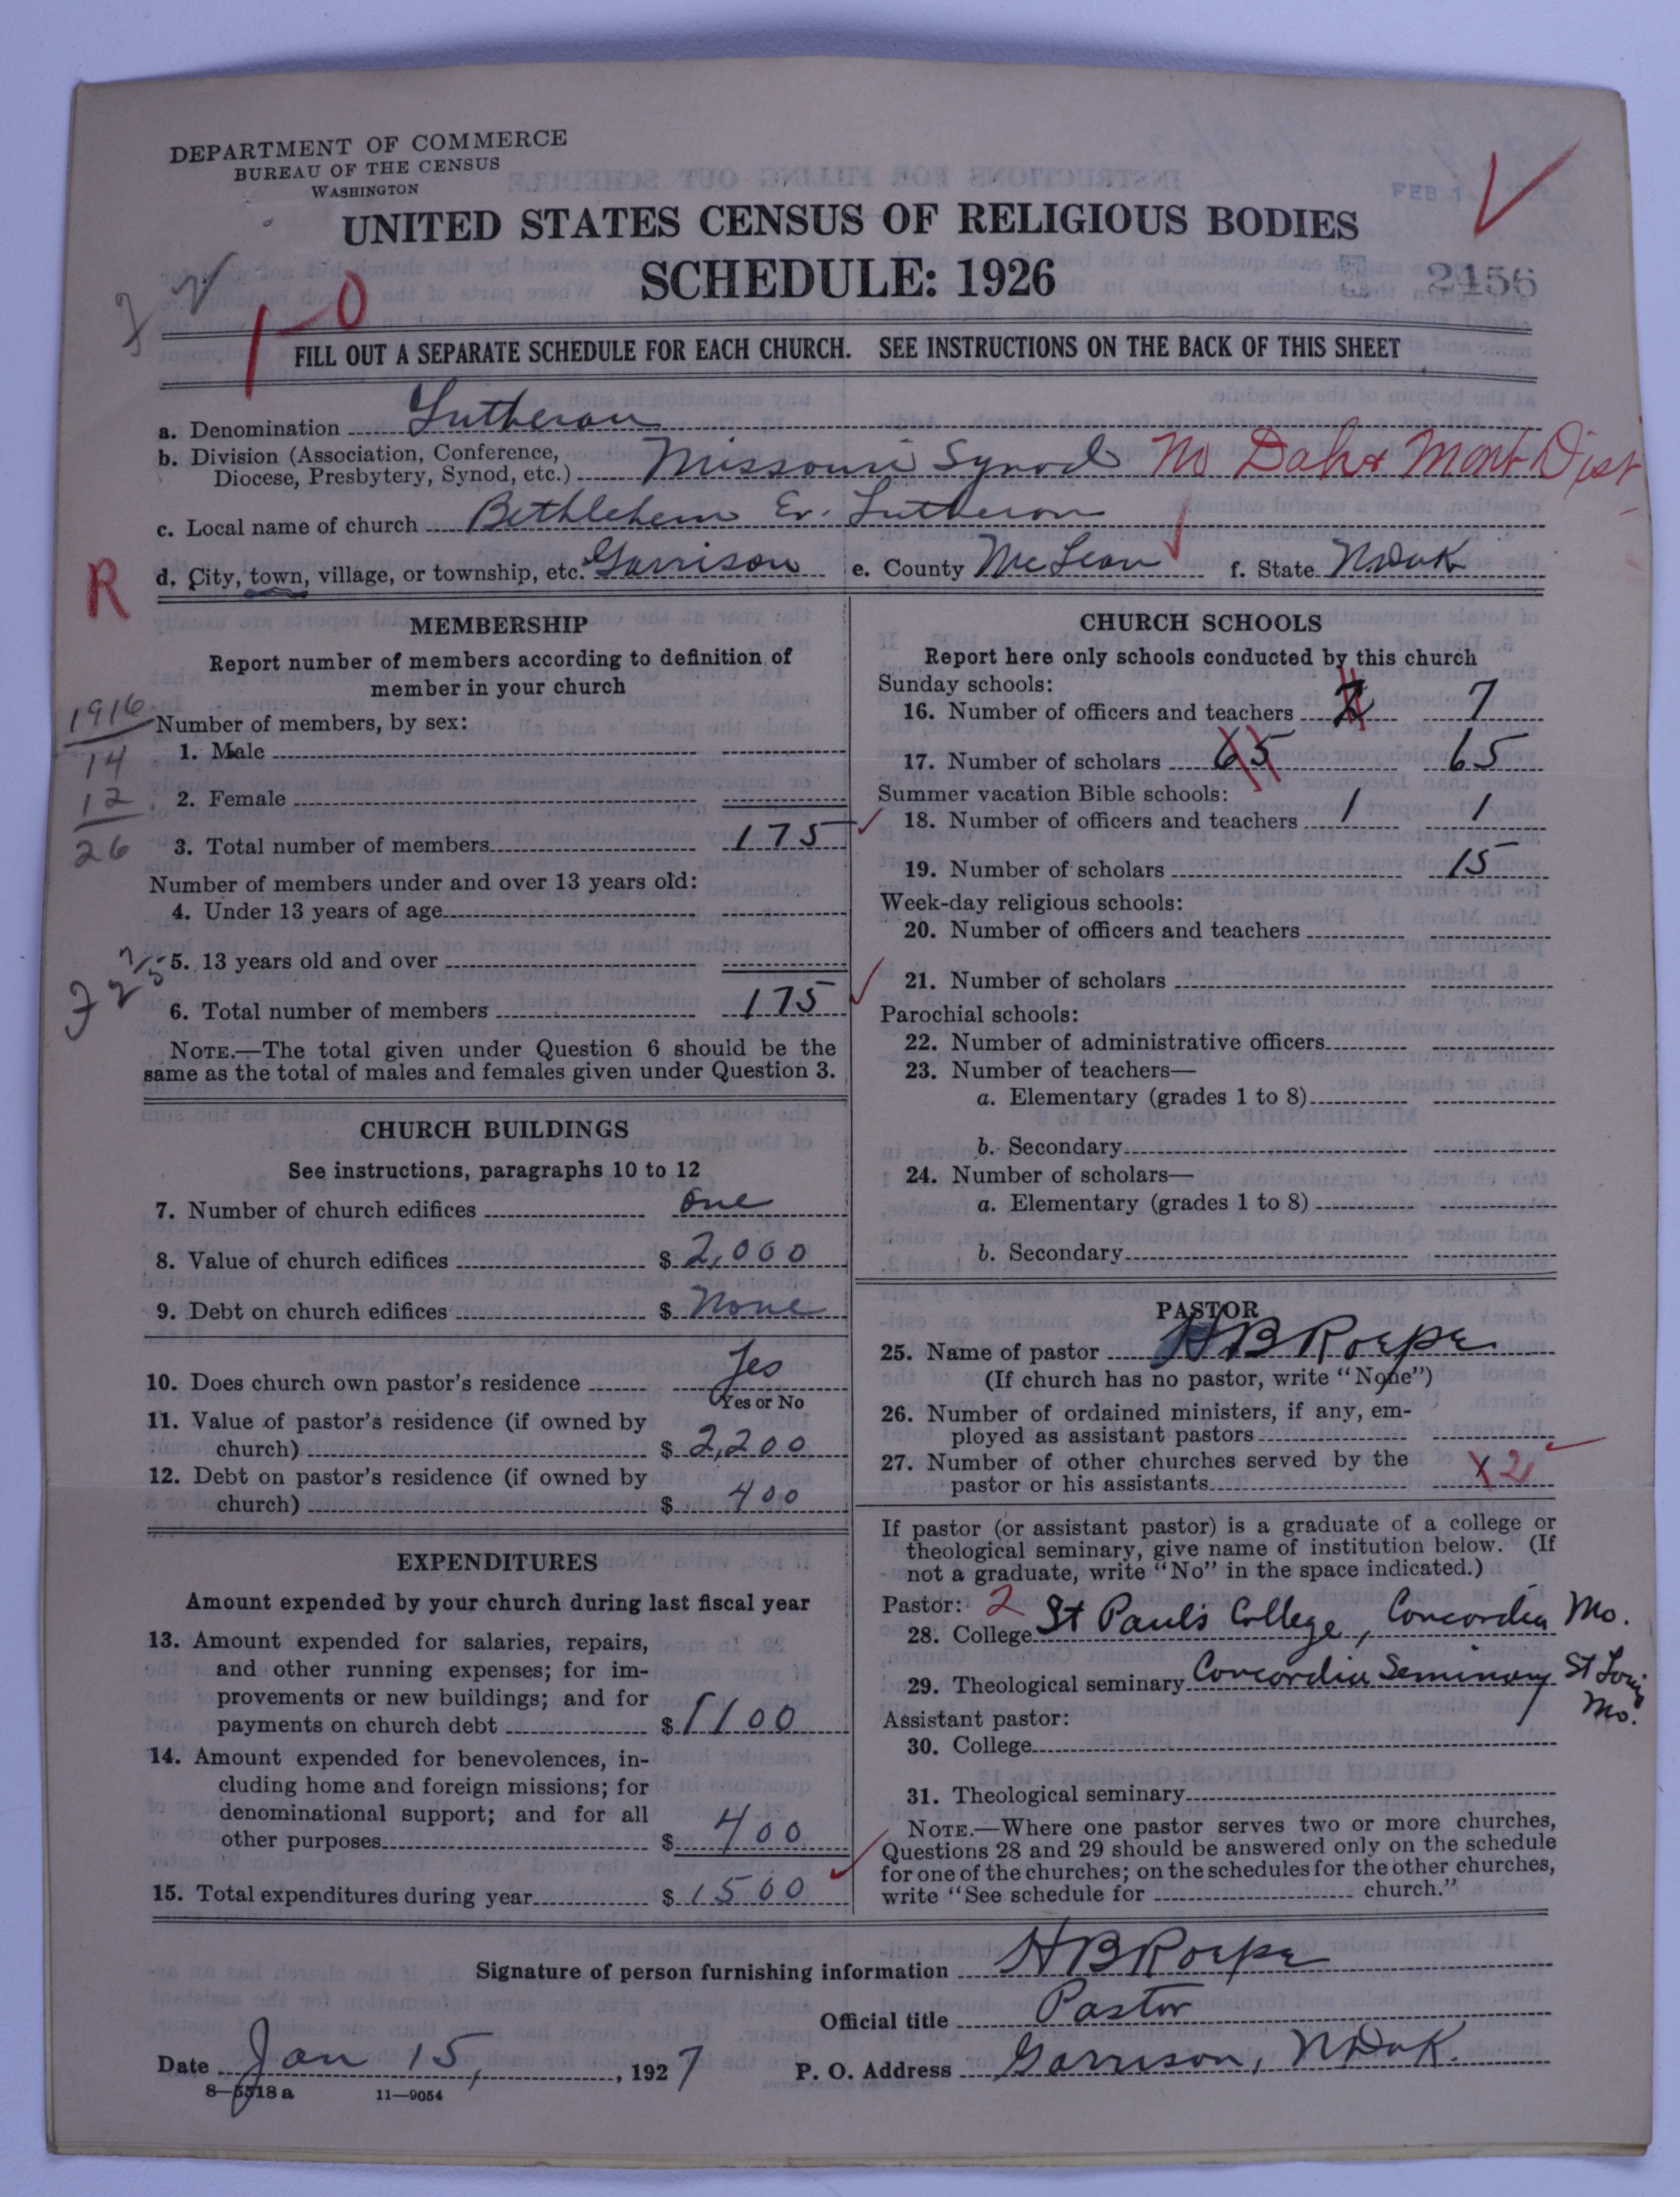 DEPARTMENT OF COMMERCE
BUREAU OF THE CENSUS
WASHINGTON
FEB 1
UNITED STATES CENSUS OF RELIGIOUS BODIES
SCHEDULE: 1926
2456
1-0
FILL OUT A SEPARATE SCHEDULE FOR EACH CHURCH. SEE INSTRUCTIONS ON THE BACK OF THIS SHEET
a. Denomination Lutheran
b. Division (Association, Conference,
Diocese, Presbytery, Synod, etc.) Missouri Synod No Dak & Mont Dist
c. Local name of church Bethlehem Ev. Lutheran
R
d. City, town, village, or township, etc. Garrison e. County McLean f. State NDak
MEMBERSHIP
Report number of members according to definition of
member in your church
1916
14
12
26
Number of members, by sex:
1. Male
2. Female
3. Total number of members 175
Number of members under and over 13 years old:
4. Under 13 years of age
5. 13 years old and over
6. Total number of members 175
NOTE.—The total given under Question 6 should be the
same as the total of males and females given under Question 3.
CHURCH BUILDINGS
See instructions, paragraphs 10 to 12
7. Number of church edifices one
8. Value of church edifices $ 2,000
9. Debt on church edifices $ None
10. Does church own pastor's residence Yes
Yes or No
11. Value of pastor's residence (if owned by
church) $ 2,200
12. Debt on pastor's residence (if owned by
church) $ 400
EXPENDITURES
Amount expended by your church during last fiscal year
13. Amount expended for salaries, repairs,
and other running expenses; for im-
provements or new buildings; and for
payments on church debt $ 1100
14. Amount expended for benevolences, in-
cluding home and foreign missions; for
denominational support; and for all
other purposes $ 400
15. Total expenditures during year $ 1500
CHURCH SCHOOLS
Report here only schools conducted by this church
Sunday schools:
16. Number of officers and teachers 7
17. Number of scholars 65 65
Summer vacation Bible schools:
18. Number of officers and teachers 1 1
19. Number of scholars 15
Week-day religious schools:
20. Number of officers and teachers
21. Number of scholars
Parochial schools:
22. Number of administrative officers
23. Number of teachers—
a. Elementary (grades 1 to 8)
b. Secondary
24. Number of scholars—
a. Elementary (grades 1 to 8)
b. Secondary
PASTOR
25. Name of pastor H B Roepe
(If church has no pastor, write "None")
26. Number of ordained ministers, if any, em-
ployed as assistant pastors
27. Number of other churches served by the
pastor or his assistants 2
If pastor (or assistant pastor) is a graduate of a college or
theological seminary, give name of institution below. (If
not a graduate, write "No" in the space indicated.)
Pastor: 2
28. College St Paul's College, Concordia Mo.
29. Theological seminary Concordia Seminary St Louis
Mo.
Assistant pastor:
30. College
31. Theological seminary
NOTE.—Where one pastor serves two or more churches,
Questions 28 and 29 should be answered only on the schedule
for one of the churches; on the schedules for the other churches,
write "See schedule for church."
Signature of person furnishing information H B Roepe
Official title Pastor
Date Jan 15, , 1927 P. O. Address Garrison, NDak.
8—5518 a 11—9054